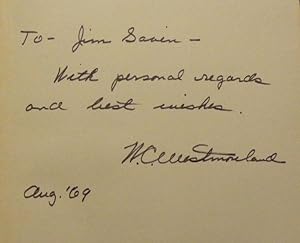 To- Jim Gavin -
With personal regards
and best wishes.
W.C. Westmoreland
Aug. '69